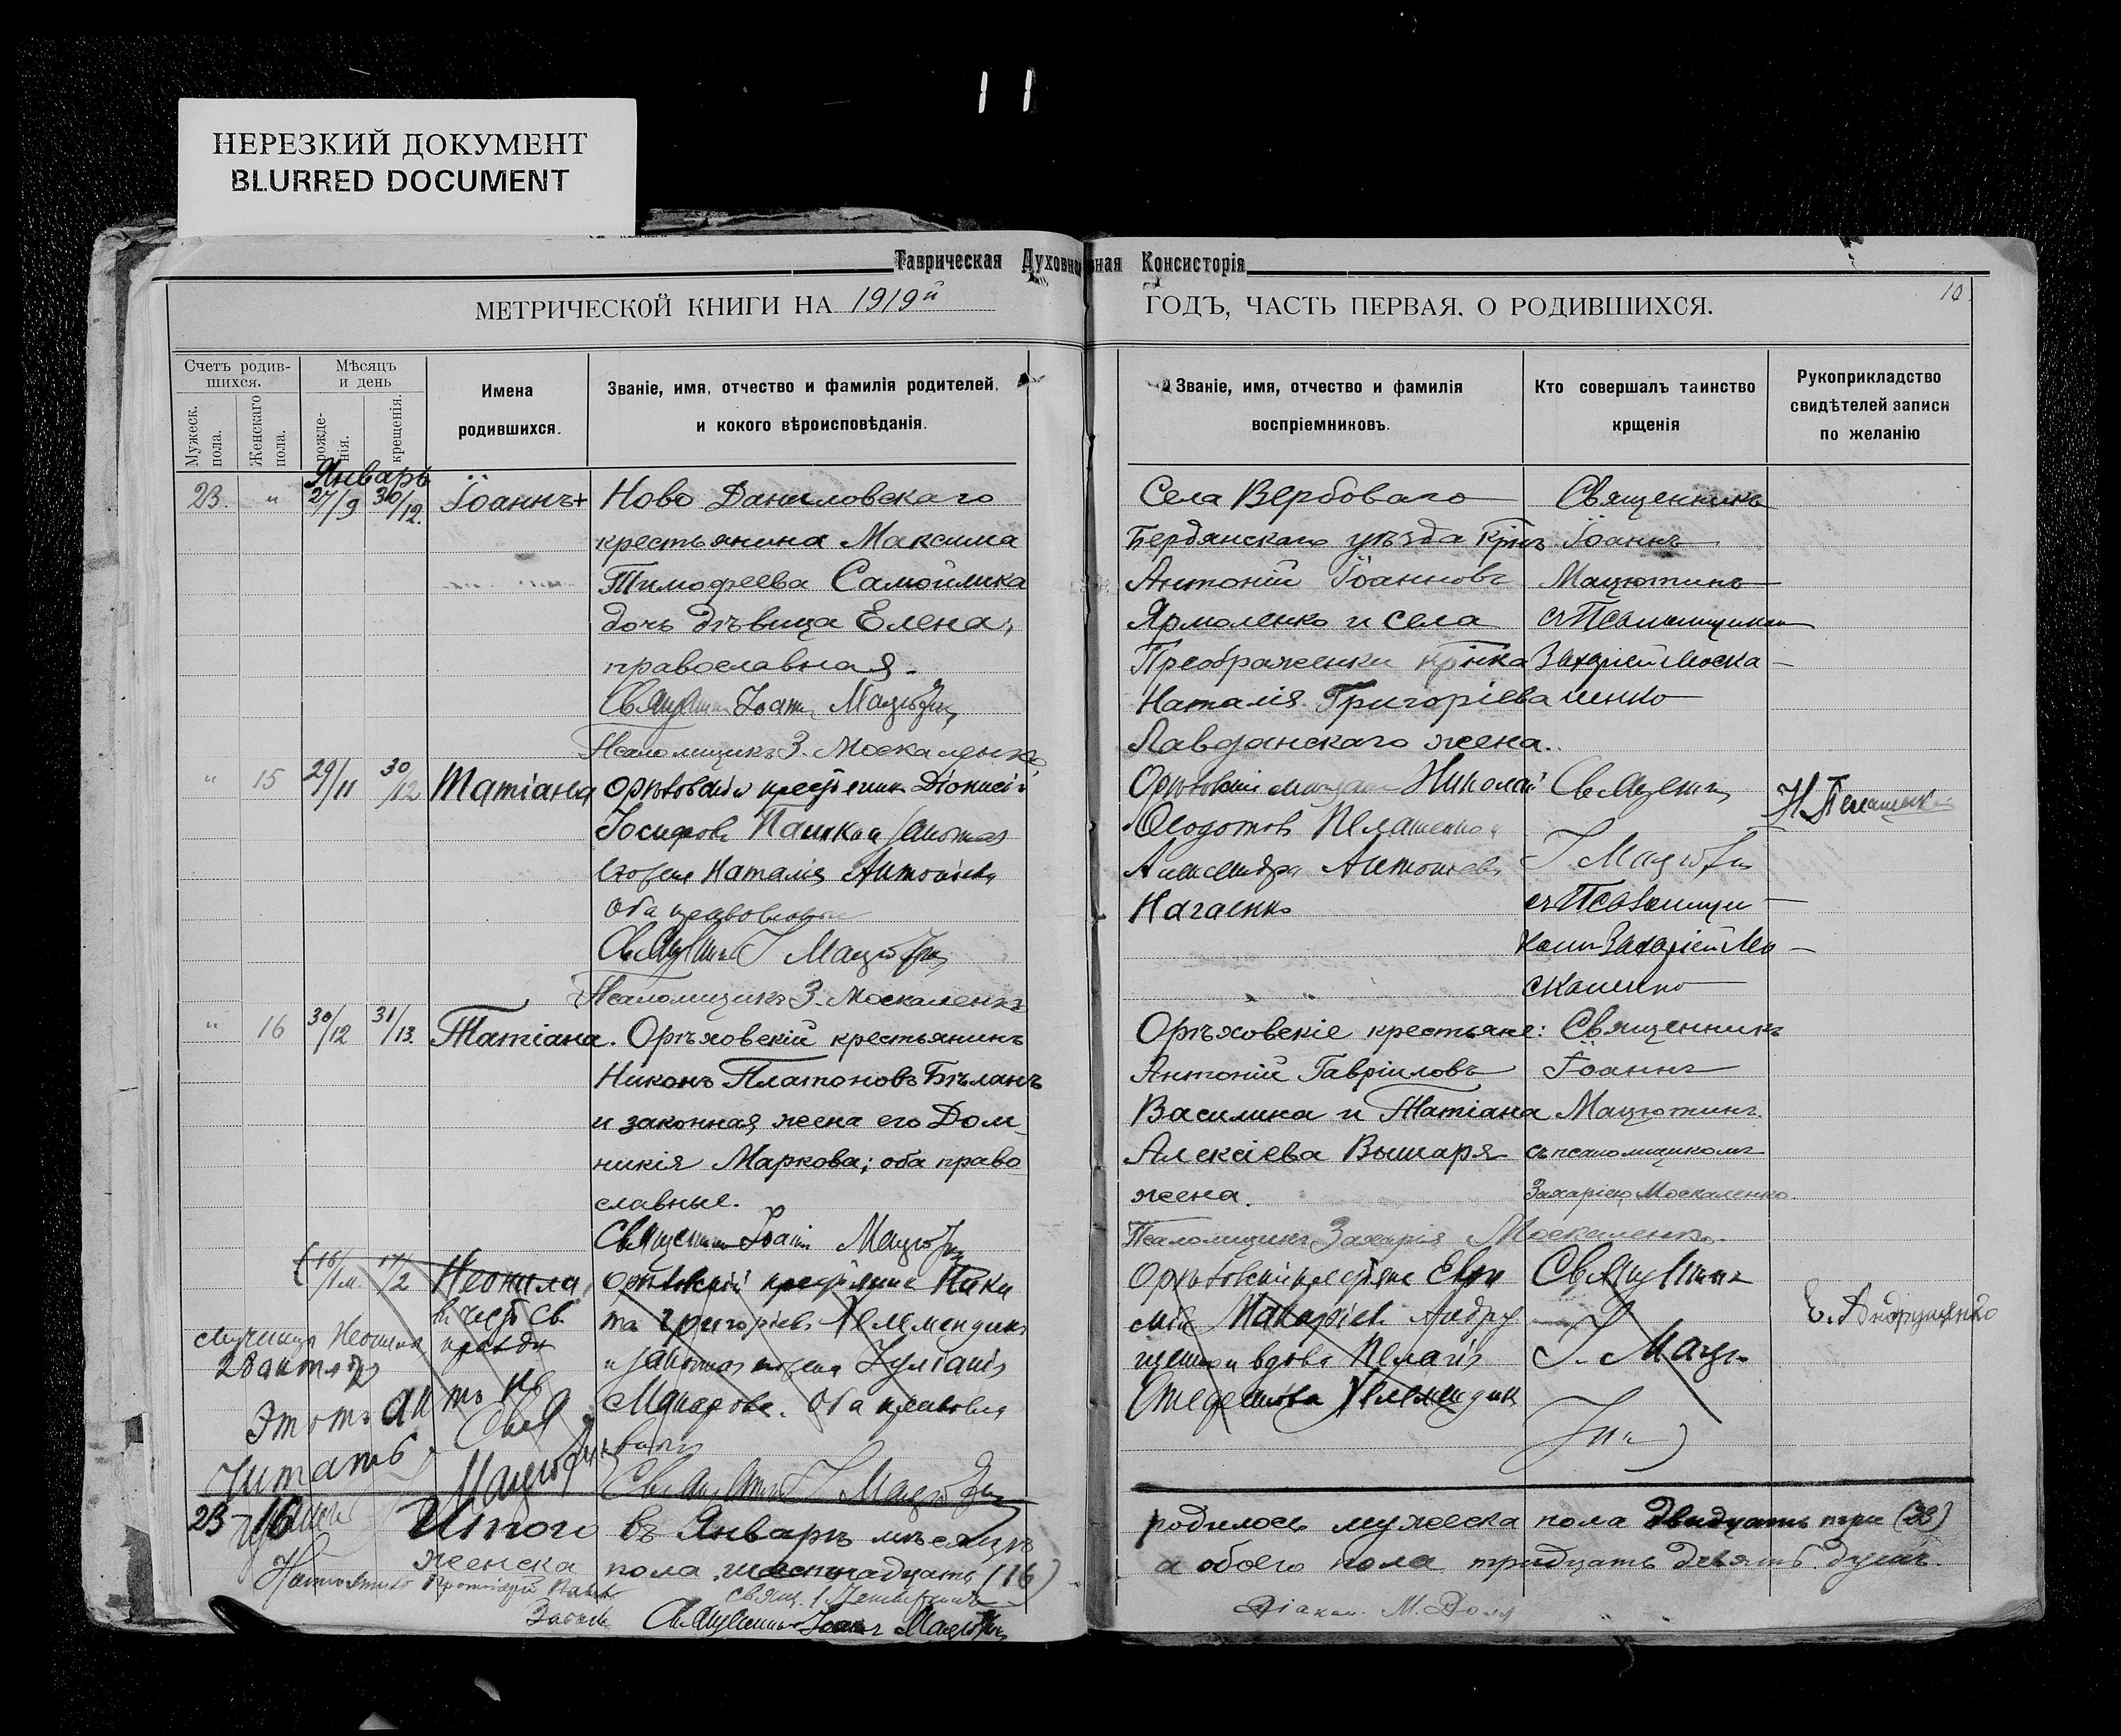 11
НЕРЕЗКИЙ ДОКУМЕНТ
BLURRED DOCUMENT
Таврическая Духовная Консисторія
10
МЕТРИЧЕСКОЙ КНИГИ НА 1919й ГОДЪ, ЧАСТЬ ПЕРВАЯ. О РОДИВШИХСЯ.
Счетъ родив-
шихся.
Мужеск. пола.
Женскаго пола.
Мѣсяцъ
и день
рожде-
нія.
крещенія.
Имена
родившихся.
Званіе, имя, отчество и фамилія родителей,
и кокого вѣроисповѣданія.
Званіе, имя, отчество и фамилія
воспріемниковъ.
Кто совершалъ таинство
крщенія
Рукоприкладство
свидѣтелей записи
по желанію
Январь
23. " 27/9 30/12. Іоаннъ+
Ново Даниловскаго
крестьянина Максима
Тимофеева Самойлика
дочь дѣвица Елена,
православная.
Іоаннъ
Псаломщикъ З. Москаленко
Села Вербоваго
Бердянскаго уѣзда
Антоній Іоанновъ
Ярмоленко и села
Преображенки
Наталія Григоріева
Лавданскаго жена.
Священникъ
Іоаннъ
Мацютинъ
съ Псаломщикомъ
Захаріей Моска
ленко
" 15 29/11 30/12 Татіана
Орѣховскій Діонисій
Іосифовъ
жена Наталія Антоніева
оба православные
Псаломщикъ З. Москаленко
Орѣховскій Николай
Федотовъ Пелашенко и
Александра Антоніева
Нагаенко
І. Мацютинъ
съ Псаломщи
комъ Захаріей Мо
скаленко
Н. Пелашенко
" 16 30/12 31/13. Татіана.
Орѣховскій крестьянинъ
Никонъ Платоновъ Бѣланъ
и законная жена его Дом-
никія Маркова; оба право
славные.
Священникъ Іоаннъ Мацютинъ
Орѣховскіе крестьяне:
Антоній Гавріиловъ
Василина и Татіана
Алексіева Вышаря
жена.
Псаломщикъ Захарія Москаленко.
Священникъ
Іоаннъ
Мацютинъ.
съ псаломщикомъ
Захаріею Москаленко.
17/2 Неонила
въ честь св.
мученица Неонила
28 октября
Орѣховскій крестьянинъ Ники
та Григоріевъ
и законная жена Іуліанія
Макарова. Оба православ
Священникъ І. Мацютинъ
Орѣховскій Евфи
мій Макаріевъ Андру
щенко и вдова Пелагія
Священникъ
І. Мацю
тинъ
Е. Андрущенко
Этотъ актъ не
читать
Мацютинъ
23 16 Итого въ Январѣ мѣсяцѣ родилось мужеска пола двадцать три (23)
женска пола шестнадцать (16) а обоего пола тридцать девять душъ.
Священникъ Іоаннъ Мацютинъ
Діакон. М.